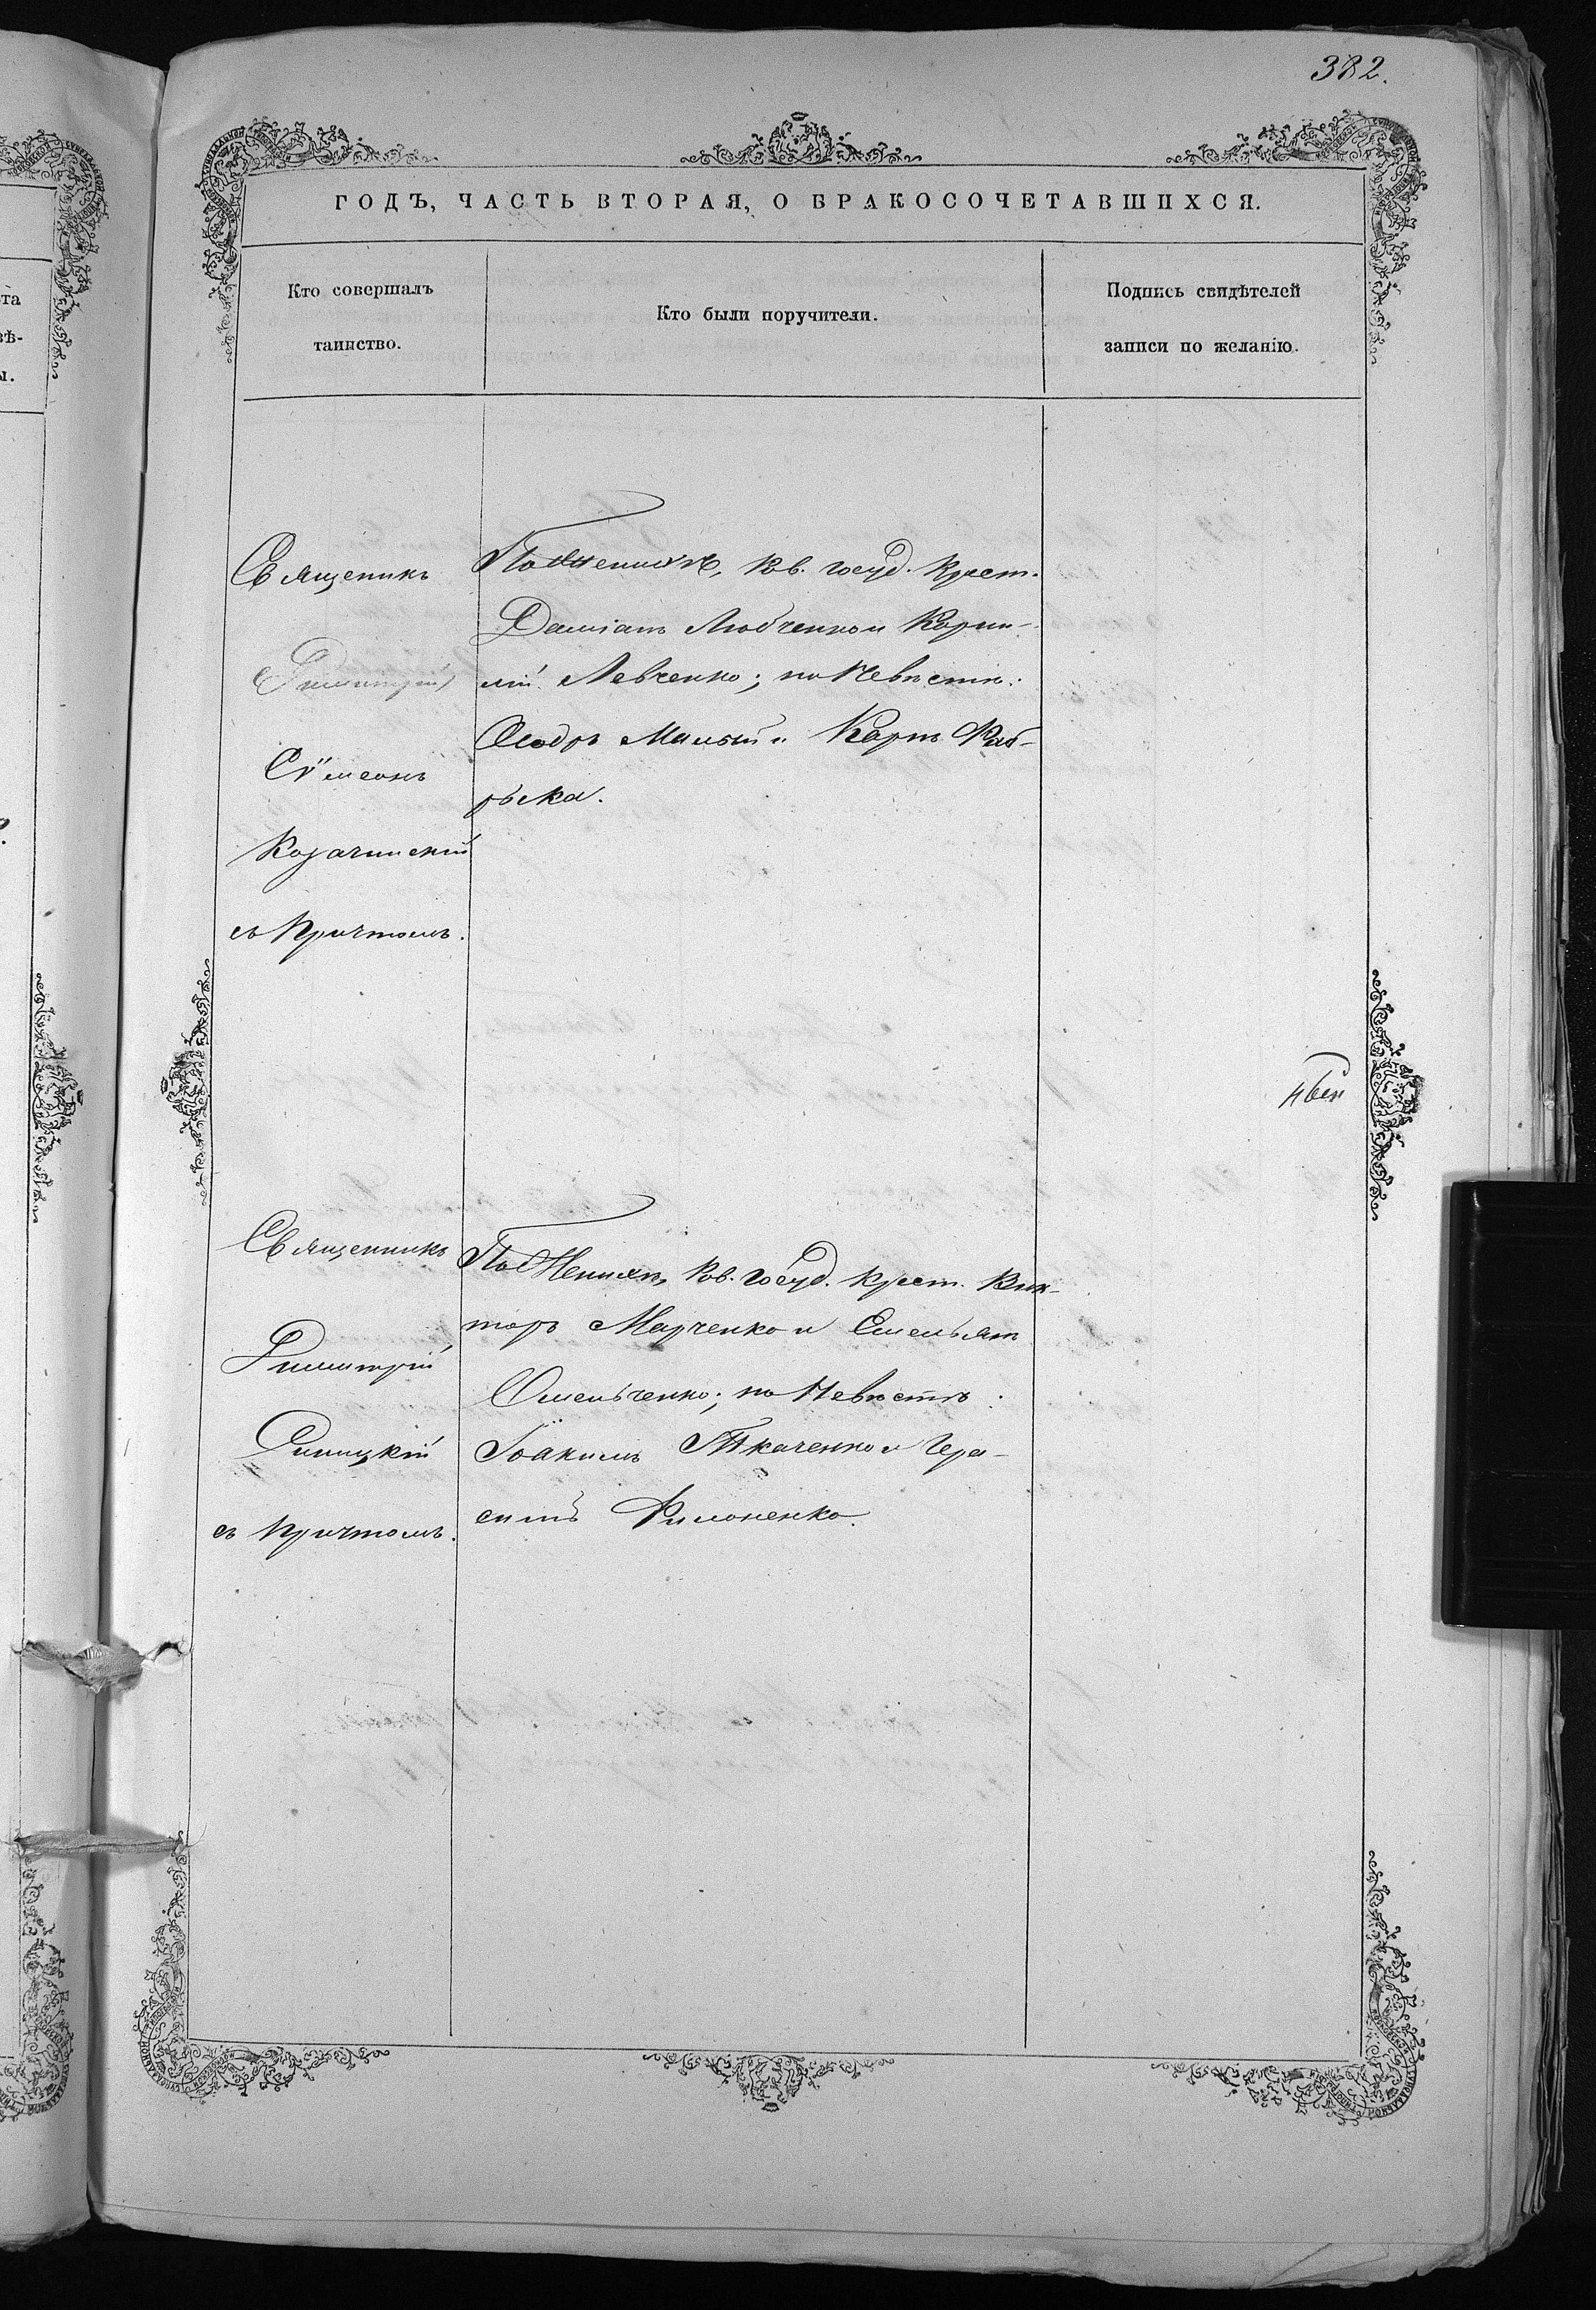 382.
ГОДЪ, ЧАСТЬ ВТОРАЯ, О БРАКОСОЧЕТАВШИХСЯ.
Кто совершалъ
таинство.
Кто были поручители.
Подпись свидѣтелей
записи по желанію.
Священникъ
Димитрій
Сѵмеонъ
Козачинскій
съ Причтомъ.
По Женихѣ, Ков. госуд. Крест.
Даміанъ Любченко и Корни-
лій Левченко; по Невѣстѣ:
Ѳеодръ Малый и Карпъ
рька.
Священникъ
Димитрій
Синицкій
съ Причтомъ.
По Женихѣ, Ков. Госуд. Крест. Вик-
торъ Марченко и Емельянъ
Омельченко; по Невѣстѣ:
Іоакимъ Ткаченко и Гера-
симъ Филоненко.